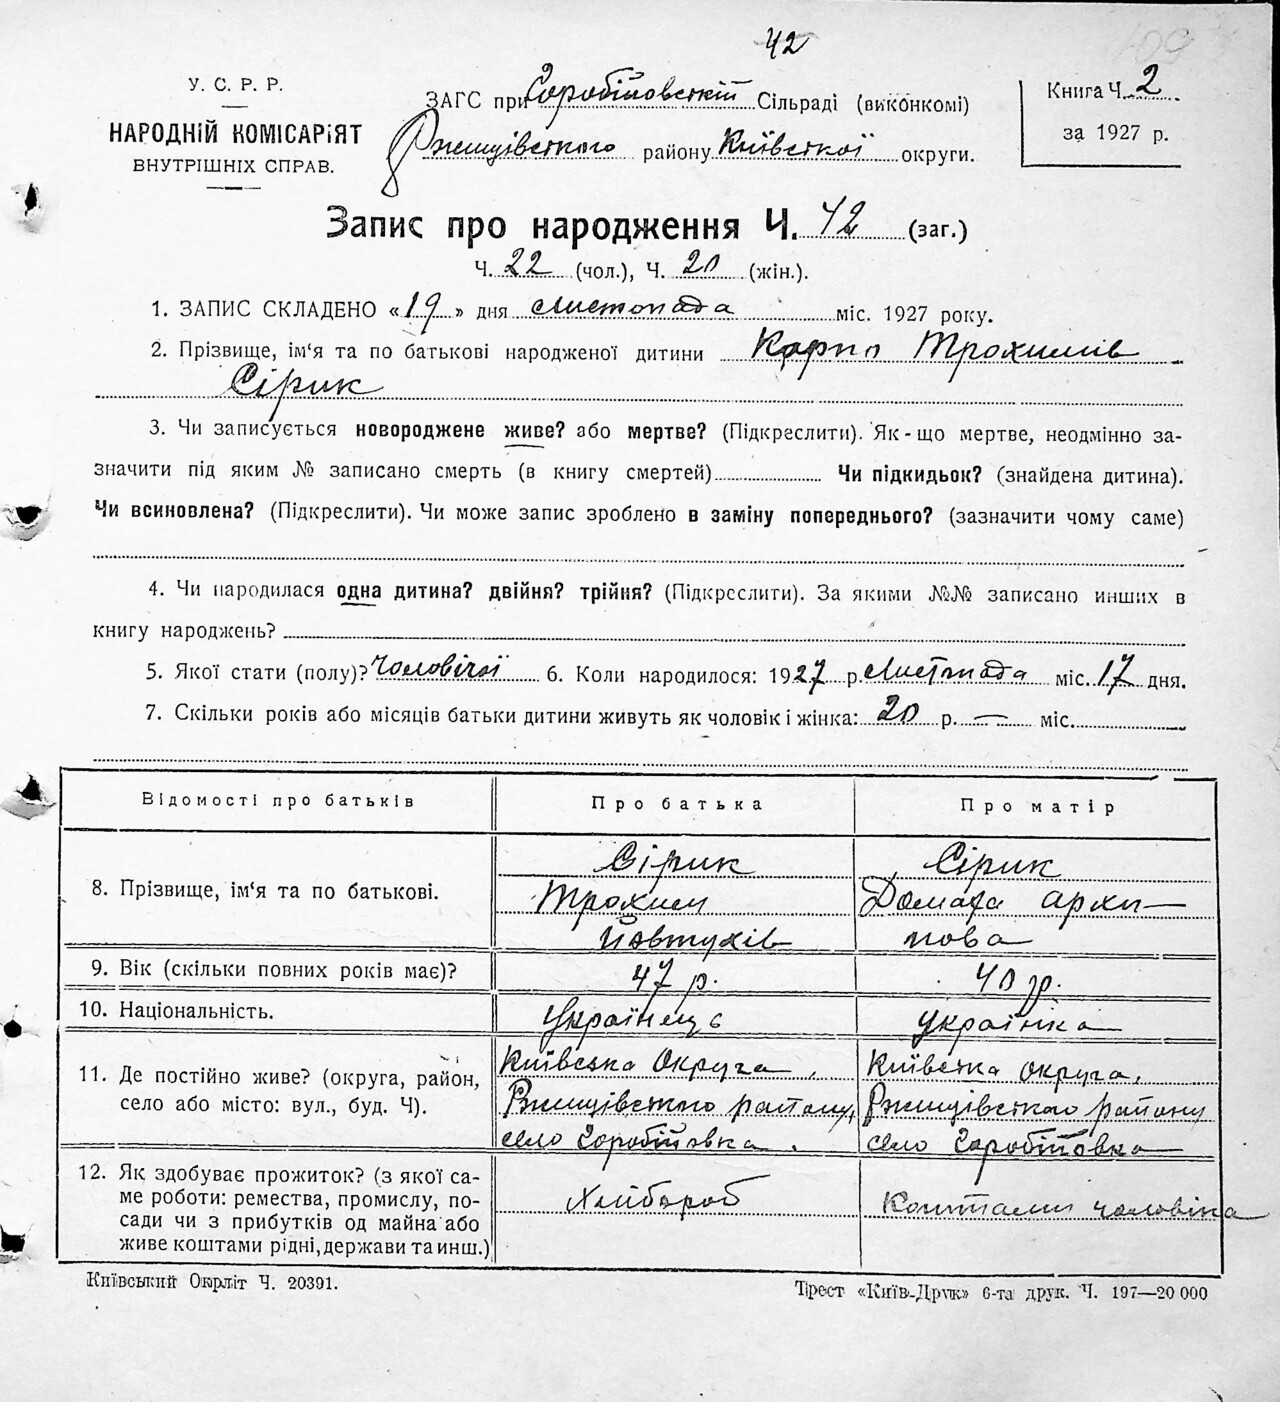 42
У. С. Р. Р.
НАРОДНІЙ КОМІСАРІЯТ
ВНУТРІШНІХ СПРАВ.
ЗАГС при Горобіївській Сільраді (виконкомі)
Ржищівського району Київської округи.
Книга Ч. 2
за 1927 р.
Запис про народження Ч. 42 (заг.)
Ч. 22 (чол.), Ч. 20 (жін.).
1. ЗАПИС СКЛАДЕНО «19» дня листопада міс. 1927 року.
2. Прізвище, ім‘я та по батькові народженої дитини Карпо Трохимів
Сірик
3. Чи записується новороджене живе? або мертве? (Підкреслити). Як-що мертве, неодмінно за-
значити під яким № записано смерть (в книгу смертей) Чи підкидьок? (знайдена дитина).
Чи всиновлена? (Підкреслити). Чи може запис зроблено в заміну попереднього? (зазначити чому саме)
4. Чи народилася одна дитина? двійня? трійня? (Підкреслити). За якими №№ записано инших в
книгу народжень?
5. Якої стати (полу)? Чоловічої 6. Коли народилося: 1927 р. Листопада міс. 17 дня.
7. Скільки років або місяців батьки дитини живуть як чоловік і жінка: 20 р. — міс.
Відомості про батьків Про батька Про матір
8. Прізвище, ім‘я та по батькові.
Сірик
Трохим
Йовтухів
Сірик
Домаха Архи—
пова
9. Вік (скільки повних років має)? 47 р. 40 р.
10. Національність. Українець українка
11. Де постійно живе? (округа, район,
село або місто: вул., буд. Ч).
Київська Округа,
Ржищівського району,
село Горобіївка.
Київська округа,
Ржищівського району
село Горобіївка
12. Як здобуває прожиток? (з якої са-
ме роботи: ремества, промислу, по-
сади чи з прибутків од майна або
живе коштами рідні, держави та инш.)
Хлібороб
Коштами чоловіка
Київський Окрліт Ч. 20391.
Трест «Київ-Друк» 6-та друк. Ч. 197—20 000